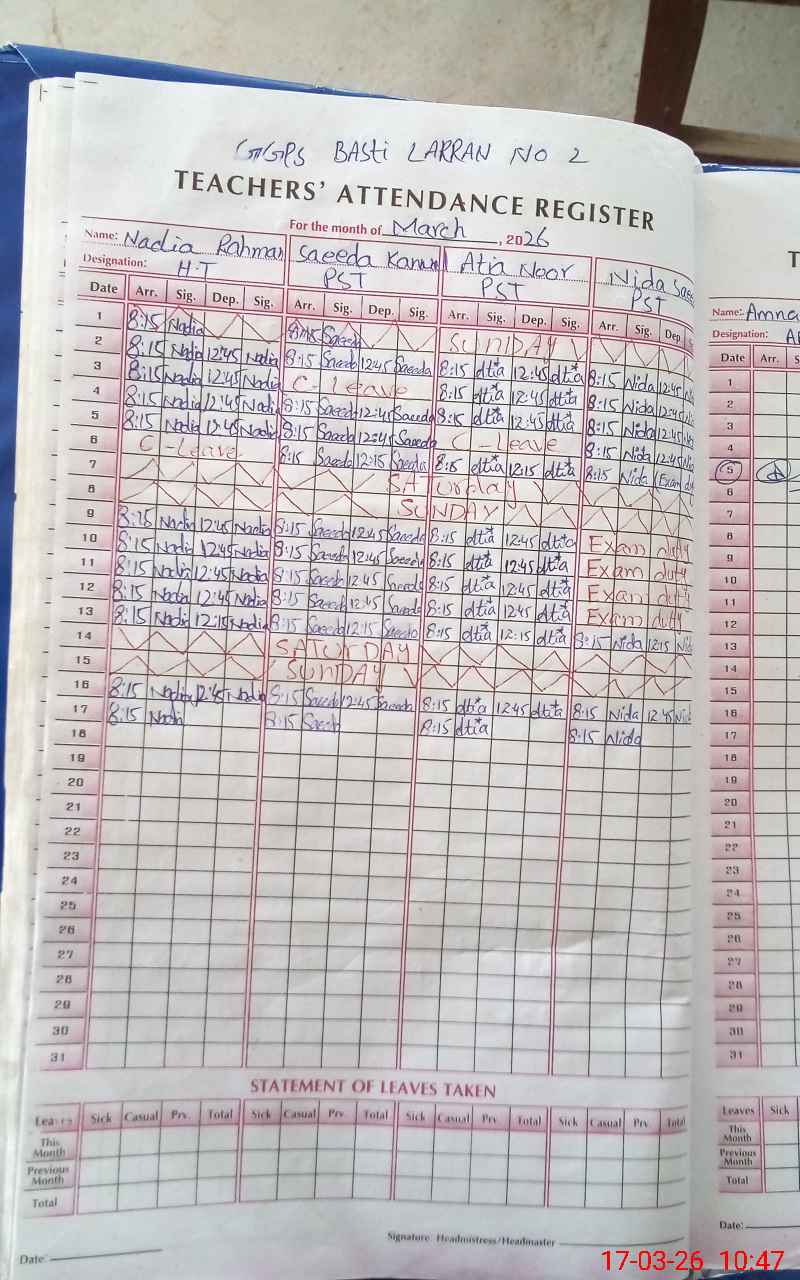 GGPS BASTI LARRAN NO 2
TEACHERS' ATTENDANCE REGISTER
For the month of March, 2026
Name: Nadia Rahman Saeeda Kanwal Atia Noor Nida Saee
Designation: H.T PST PST PST
Date Arr. Sig. Dep. Sig. Arr. Sig. Dep. Sig. Arr. Sig. Dep. Sig. Arr. Sig. Dep. S
1 8:15 Nadia 8:15 Saeeda SUNDAY
2 8:15 Nadia 12:45 Nadia 8:15 Saeeda 12:45 Saeeda 8:15 Atia 12:45 Atia 8:15 Nida 12:45
3 8:15 Nadia 12:45 Nadia C-Leave 8:15 Atia 12:45 Atia 8:15 Nida 12:45
4 8:15 Nadia 12:45 Nadia 8:15 Saeeda 12:45 Saeeda 8:15 Atia 12:45 Atia 8:15 Nida 12:45
5 8:15 Nadia 12:45 Nadia 8:15 Saeeda 12:45 Saeeda C-Leave 8:15 Nida 12:45
6 C-Leave 8:15 Saeeda 12:15 Saeeda 8:15 Atia 12:15 Atia 8:15 Nida (Exam
7 SATUrday
8 SUNDAY
9 8:15 Nadia 12:45 Nadia 8:15 Saeeda 12:45 Saeeda 8:15 Atia 12:45 Atia Exam duty
10 8:15 Nadia 12:45 Nadia 8:15 Saeeda 12:45 Saeeda 8:15 Atia 12:45 Atia Exam duty
11 8:15 Nadia 12:45 Nadia 8:15 Saeeda 12:45 Saeeda 8:15 Atia 12:45 Atia Exam duty
12 8:15 Nadia 12:45 Nadia 8:15 Saeeda 12:45 Saeeda 8:15 Atia 12:45 Atia Exam duty
13 8:15 Nadia 12:15 Nadia 8:15 Saeeda 12:15 Saeeda 8:15 Atia 12:15 Atia 8:15 Nida 12:15 Nid
14 SATURDAY
15 SUNDAY
16 8:15 Nadia 12:45 Nadia 8:15 Saeeda 12:45 Saeeda 8:15 Atia 12:45 Atia 8:15 Nida 12:45 Nid
17 8:15 Nadia 8:15 Saeeda 8:15 Atia 8:15 Nida
18
19
20
21
22
23
24
25
26
27
28
29
30
31
STATEMENT OF LEAVES TAKEN
Leaves Sick Casual Prv. Total Sick Casual Prv. Total Sick Casual Prv Total Sick Casual Prv. Total
This Month
Previous Month
Total
Signature Headmistress/Headmaster
Date:
T
Name: Amna
Designation: A
Date Arr. S
1
2
3
4
5
6
7
8
9
10
11
12
13
14
15
16
17
18
19
20
21
22
23
24
25
26
27
28
29
30
31
Leaves Sick
This Month
Previous Month
Total
Date:
17-03-26 10:47